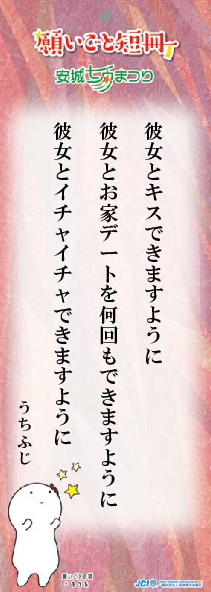 願いごと短冊
安城七夕まつり
彼女とキスできますように
彼女とお家デートを何回もできますように
彼女とイチャイチャできますように
うちふじ
願いごと短冊
JCI